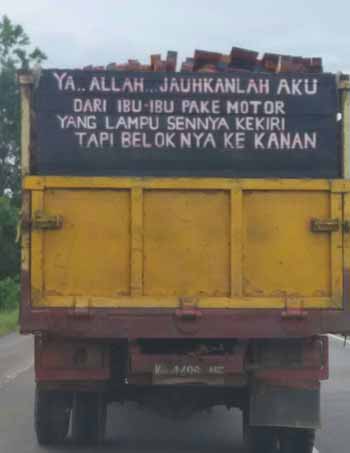 YA.. ALLAH...JAUHKANLAH AKU
DARI IBU-IBU PAKE MOTOR
YANG LAMPU SENNYA KEKIRI
TAPI BELOKNYA KE KANAN